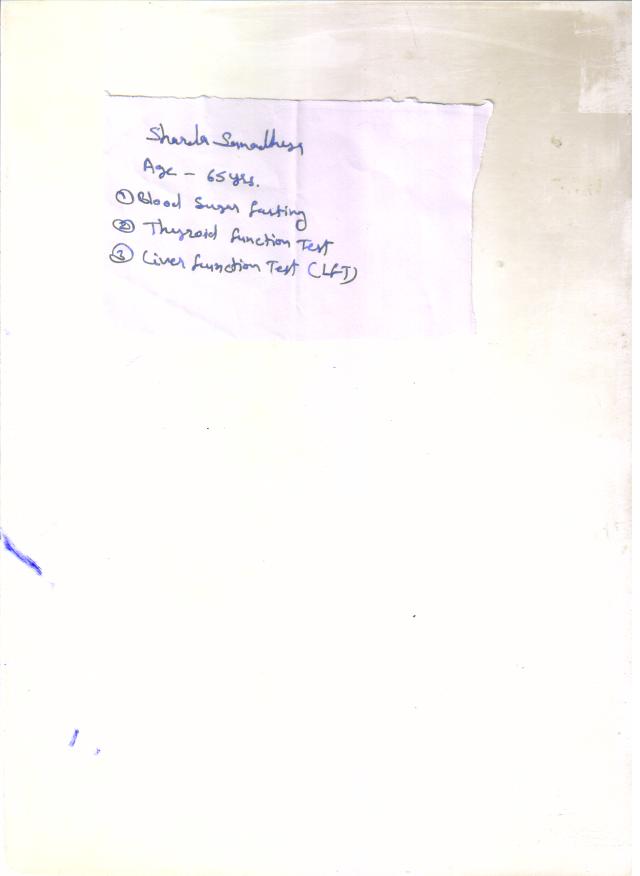 Sharda Samadhiya
Age - 65 yrs.
① Blood Sugar fasting
② Thyroid function Test
③ Liver function Test (LFT)